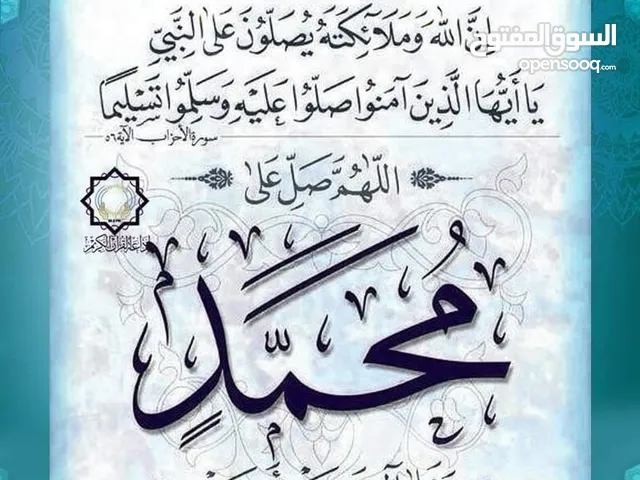 السوق المفتوح
opensooq.com
إِنَّ اللَّهَ وَمَلَائِكَتَهُ يُصَلُّونَ عَلَى النَّبِيِّ
يَا أَيُّهَا الَّذِينَ آمَنُوا صَلُّوا عَلَيْهِ وَسَلِّمُوا تَسْلِيمًا
سورة الأحزاب الآية ٥٦
اللَّهُمَّ صَلِّ عَلَى
إذاعة القرآن الكريم
مُحَمَّدٍ